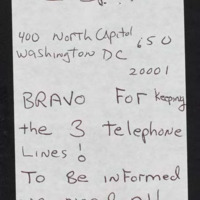 400 North Capitol 650
Washington DC
20001
BRAVO For Keeping
the 3 Telephone
Lines!
To Be inFormed